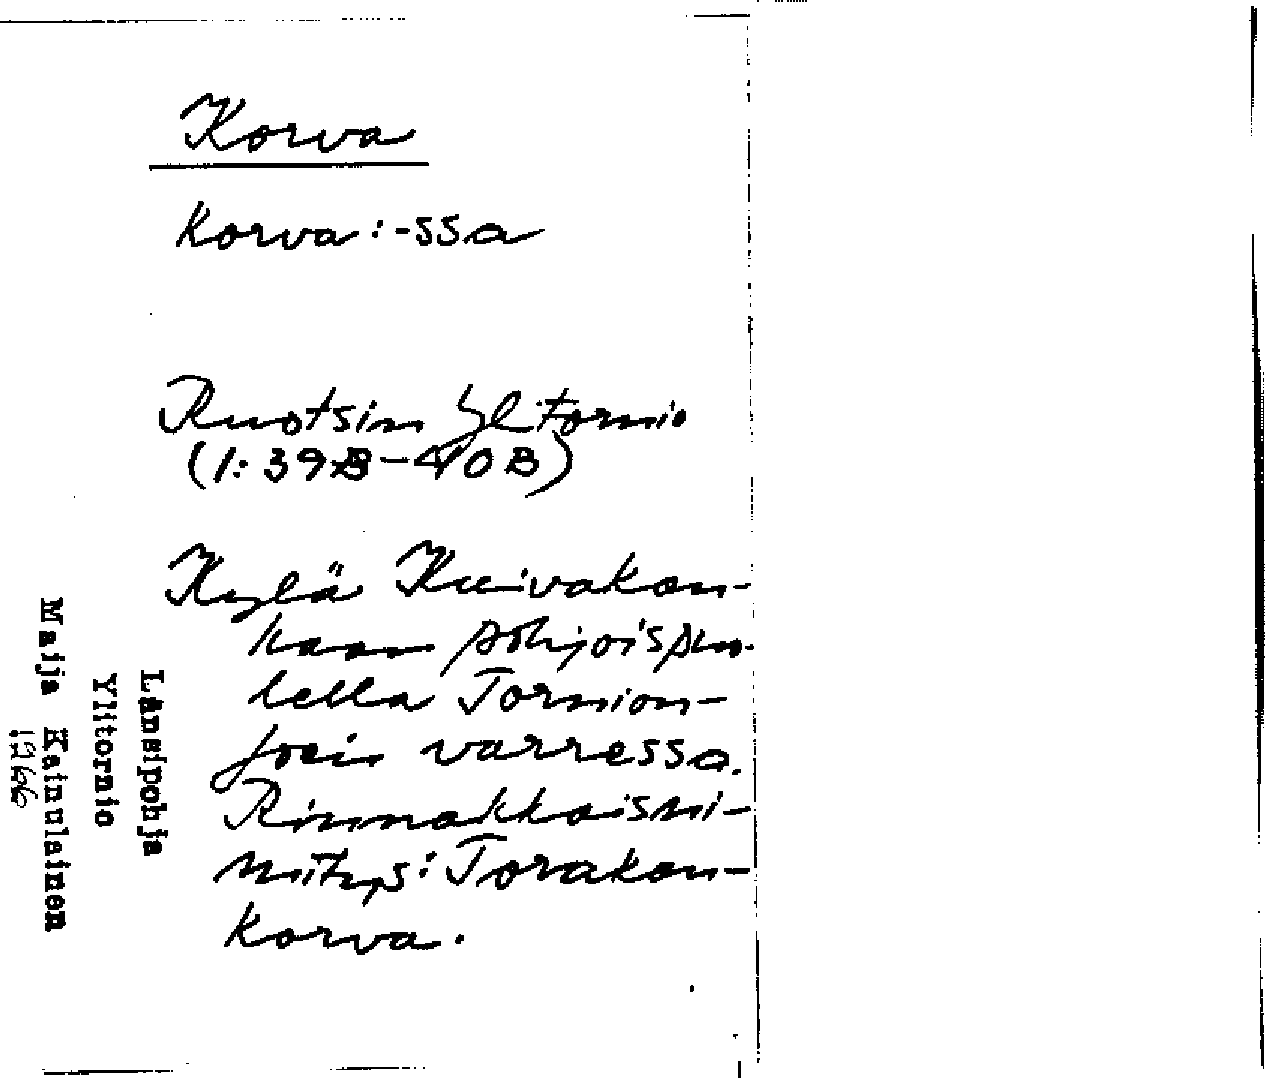 Korva
Korva:-ssa
Ruotsin Ylitornio
(1:39B-40B)
Kylä Kuivakan-
kaan pohjoispuo-
lella Tornion-
joen varressa.
Rinnakkaisni-
mitys: Torakan-
korva.
Länsipohja
Ylitornio
Maija Kainulainen
1966